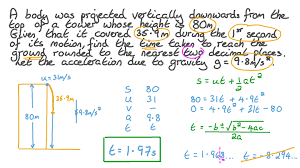 A body was projected vertically downwards from the
top of a tower whose height is 80m.
Given that it covered 35.9m during the 1st second
of its motion, find the time taken to reach the
ground rounded to the nearest two decimal places.
Let the acceleration due to gravity g = 9.8m/s²
u = 31m/s
35.9m
80m
S 80
u 31
v -
a 9.8
t t
s = ut + ½at²
80 = 31t + 4.9t²
0 = 4.9t² + 31t - 80
t = -b ± √b² - 4ac
2a
t = 1.97s
t = 1.968... t = -8.294...